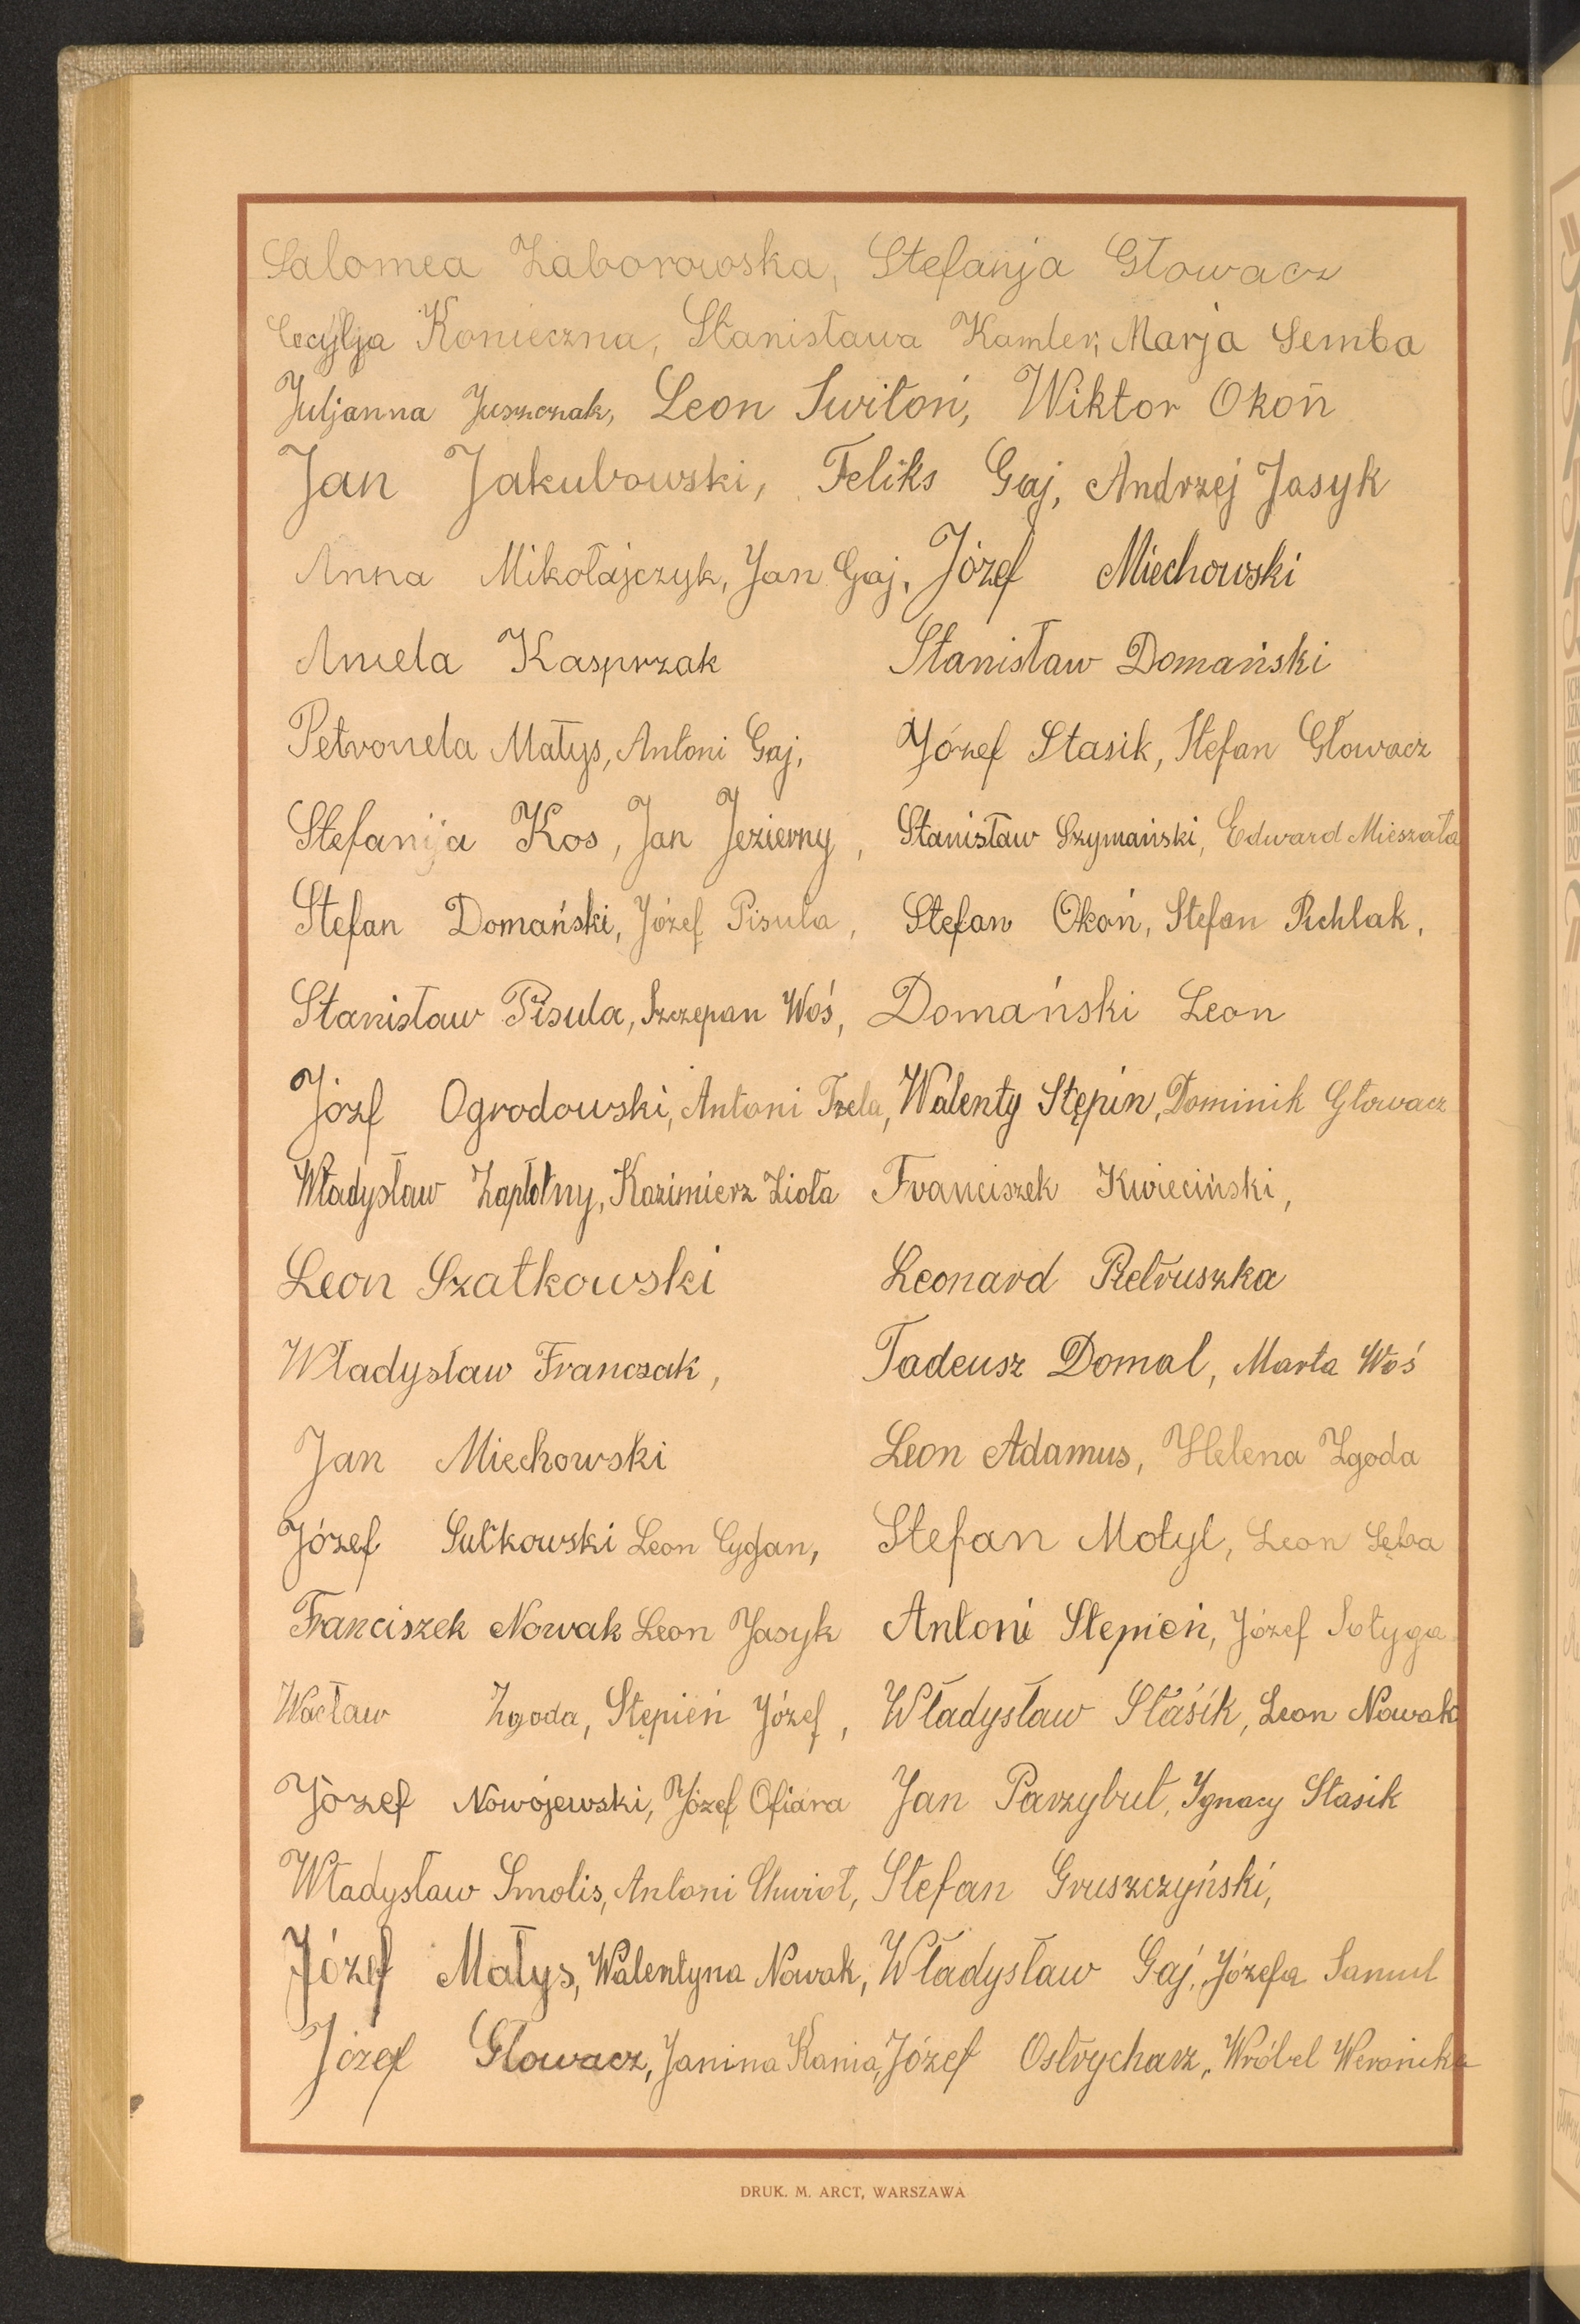 Salomea Zaborowska, Stefanja Głowacz
Cecylja Konieczna, Stanisława Kamler, Marja Semba
Juljanna Juszczak, Leon Switoń, Wiktor Okoń
Jan Jakubowski, Feliks Gaj, Andrzej Jasyk
Anna Mikołajczyk, Jan Gaj, Józef Miechowski
Aniela Kasprzak Stanisław Domański
Petronela Małys, Antoni Gaj, Józef Stasik, Stefan Głowacz
Stefanija Kos, Jan Jezierny, Stanisław Szymański, Edward Mieszała
Stefan Domański, Józef Pisula, Stefan Okoń, Stefan Pichlak,
Stanisław Pisula, Szczepan Woś, Domański Leon
Józf Ogrodowski, Antoni Trela, Walenty Stępin, Dominik Głowacz
Władysław Zapłotny, Kazimierz Zioła Franciszek Kwieciński,
Leon Szatkowski Leonard Pietruszka
Władysław Franczak, Tadeusz Domal, Marta Woś
Jan Miechowski Leon Adamus, Helena Zgoda
Józef Sułkowski Leon Cygan, Stefan Motyl, Leon Sęba
Franciszek Nowak Leon Jasyk Antoni Stepień, Józef Sołyga
Wacław Zgoda, Stępień Józef, Władysław Stásik, Leon Nowak
Józef Nowojewski, Józef Ofiara Jan Parzybut, Ignacy Stasik
Władysław Smolis, Antoni Chwiot, Stefan Gruszczyński,
Józef Małys, Walentyna Nowak, Władysław Gaj, Józefa Samul
Józef Głowacz, Janina Kania, Józef Ostrycharz, Wróbel Weronika
DRUK. M. ARCT, WARSZAWA